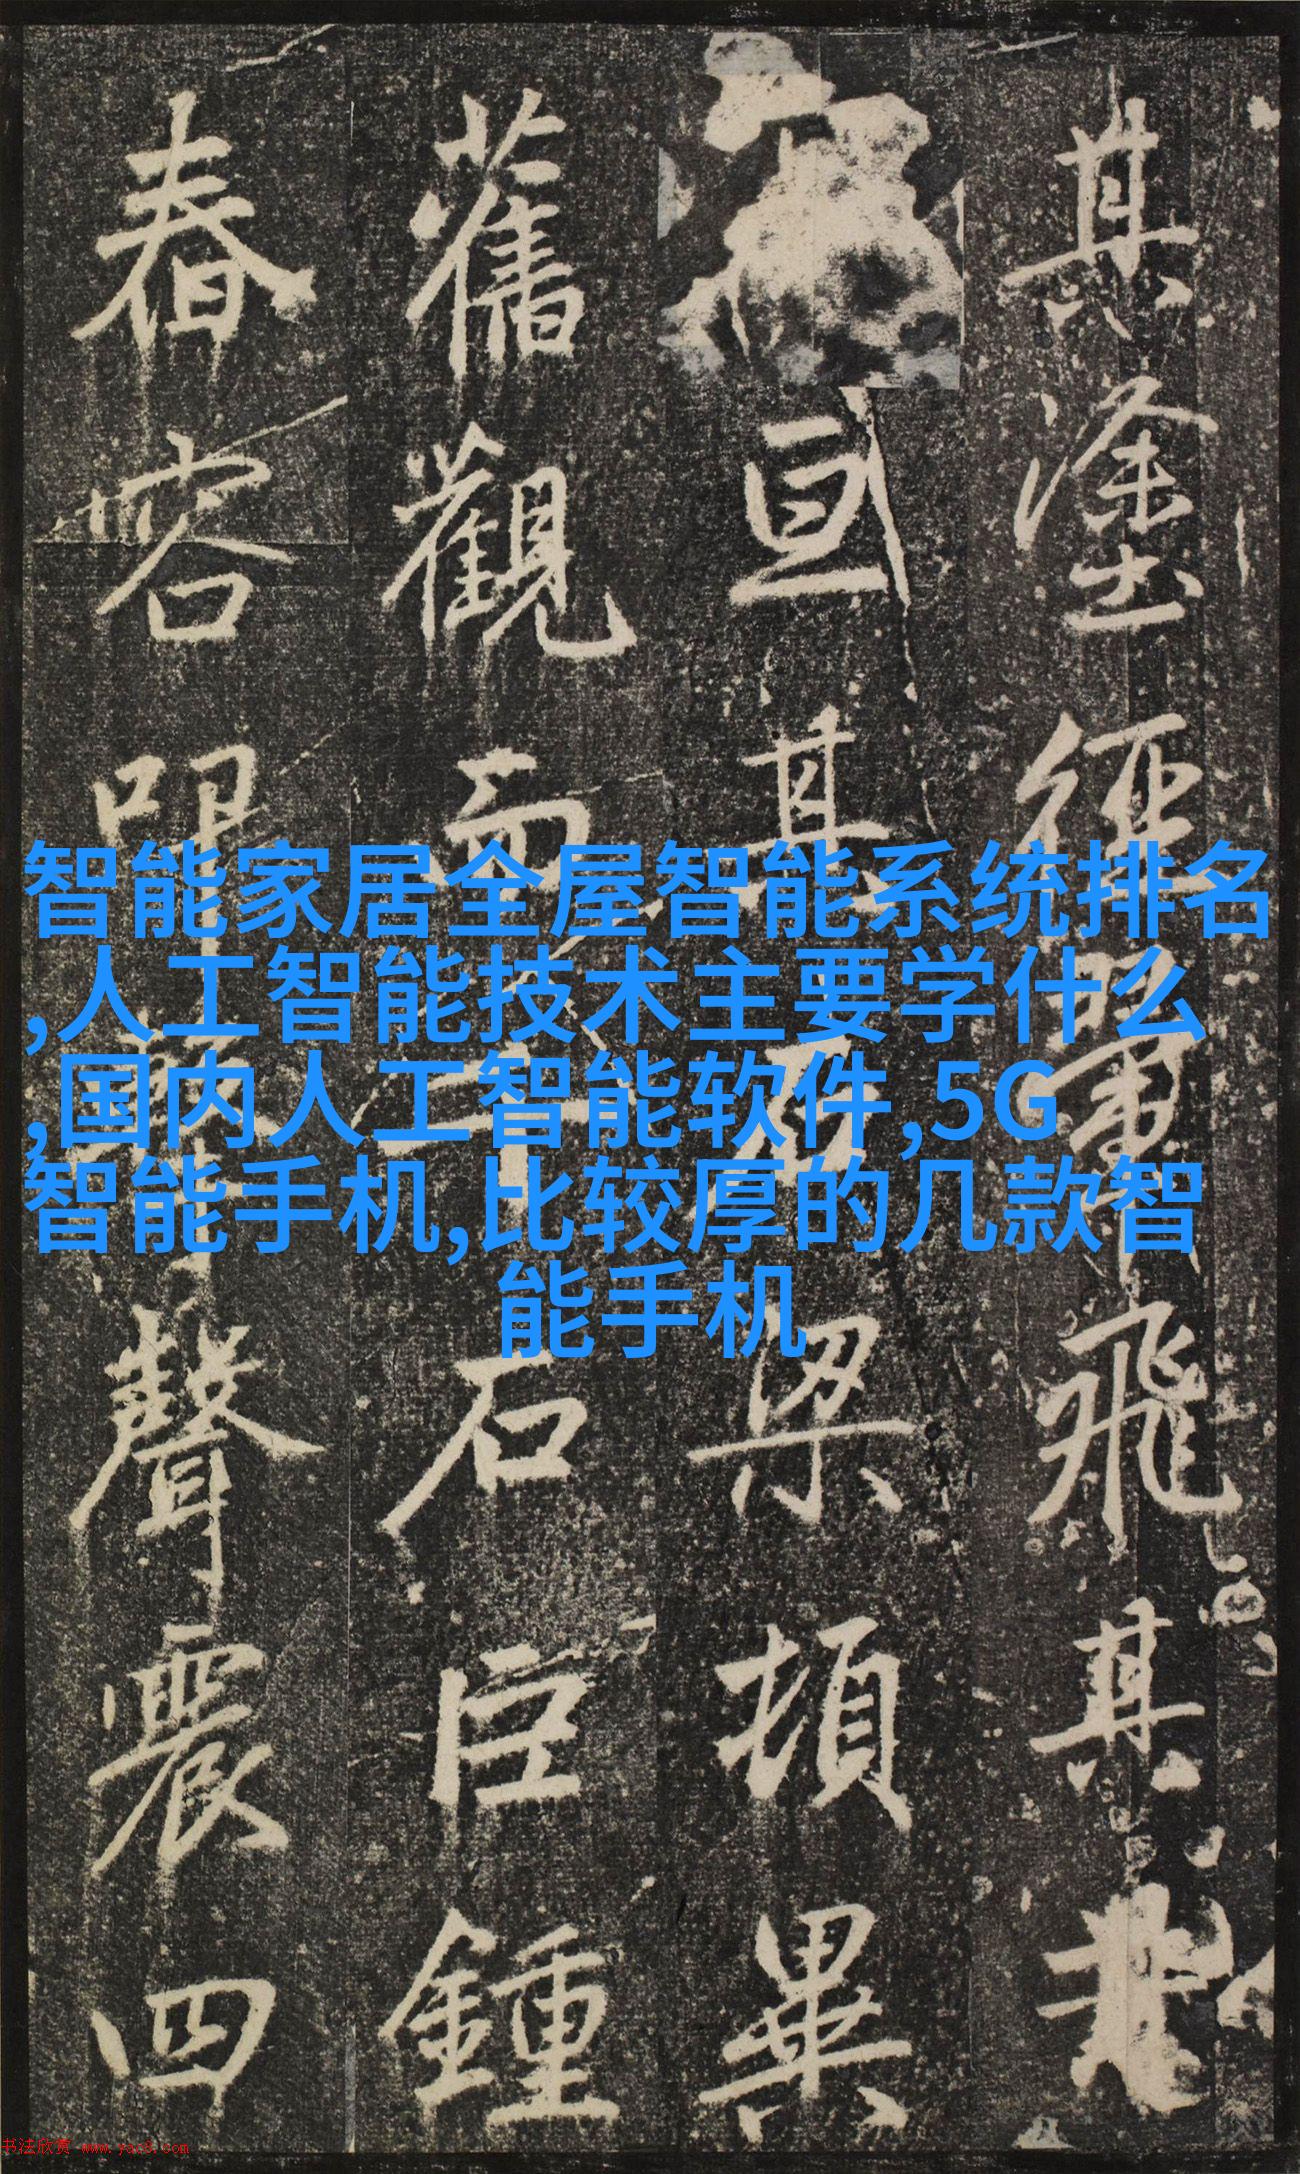 智能家居全屋智能系统排名
,人工智能技术主要学什么
,国内人工智能软件,5G
智能手机,比较厚的几款智
能手机
其塗經飛其
亘其梁頓畢
舊觀而石巨鍾
舂容叩聲震四
书法欣赏 www.yac8.com